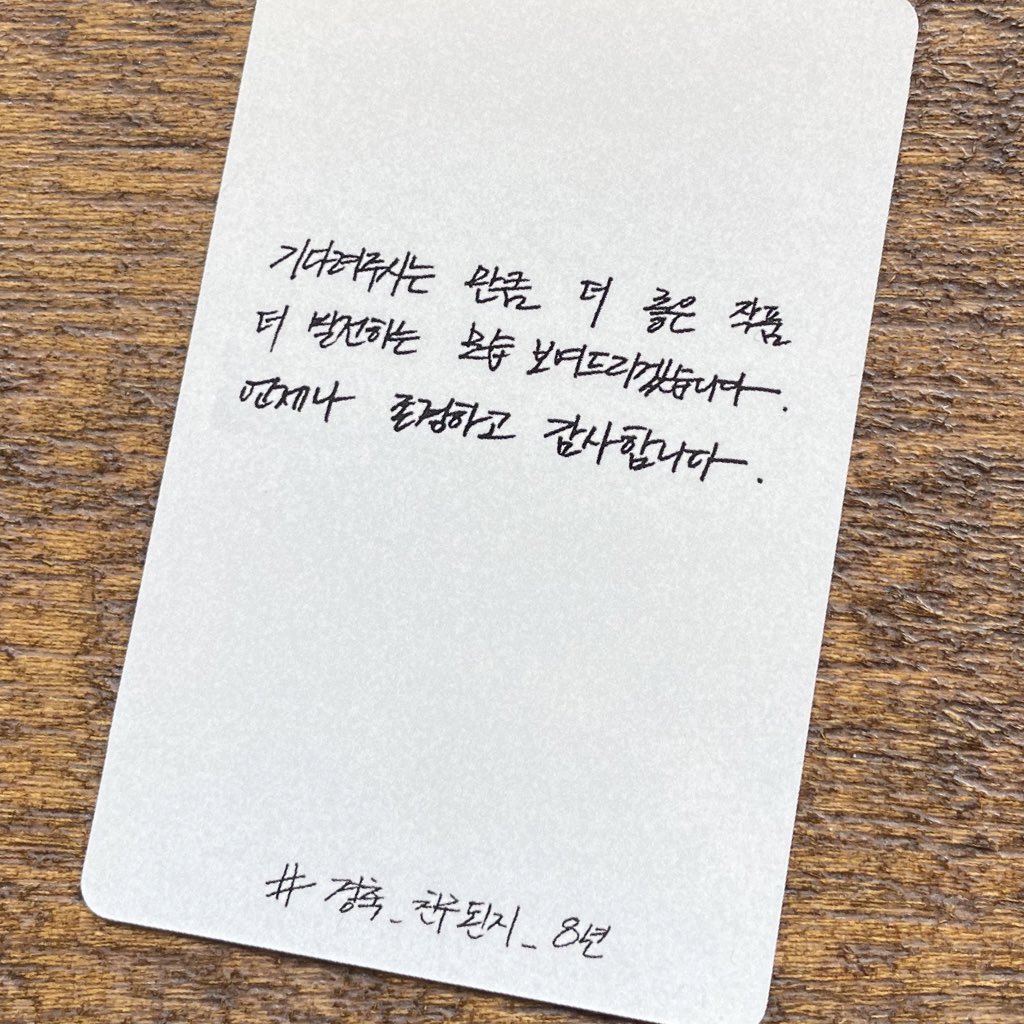 기다려주시는 만큼 더 좋은 작품
더 발전하는 모습 보여드리겠습니다.
언제나 존경하고 감사합니다.
#경축_친구된지_8년